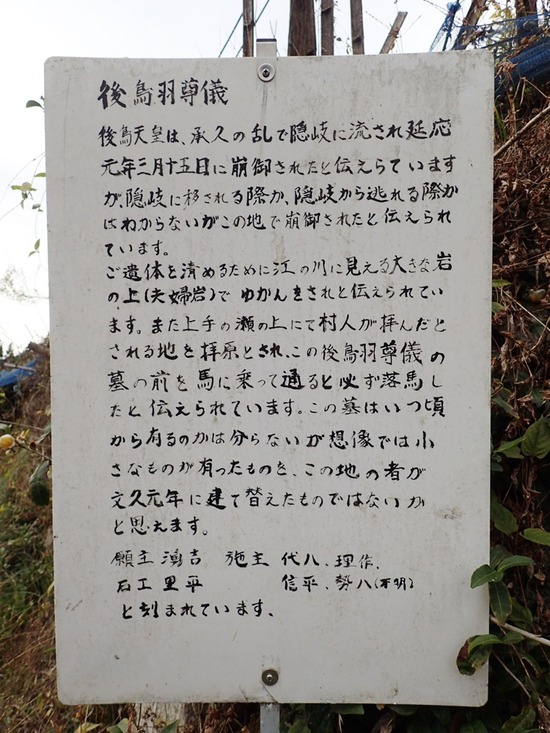 後鳥羽尊儀
後鳥天皇は、承久の乱で隠岐に流され延応
元年三月十五日に崩御されたと伝えらています
が、隠岐に移される際か、隠岐から逃れる際か
はわからないがこの地で崩御されたと伝えられ
ています。
ご遺体を清めるために江の川に見える大きな岩
の上(夫婦岩)で ゆかんをされと伝えられてい
ます。また上手の瀬の上にて村人が拝んだと
される地を拝原とされ、この後鳥羽尊儀の
墓の前を馬に乗って通ると必ず落馬し
たと伝えられています。この墓はいつ頃
から有るのかは分らないが想像では小
さなものが有ったものを、この地の者が
文久元年に建て替えたものではないか
と思えます。
願主 鴻吉 施主 代八、理作、
石工 里平 信平、勢八(不明)
と刻まれています、